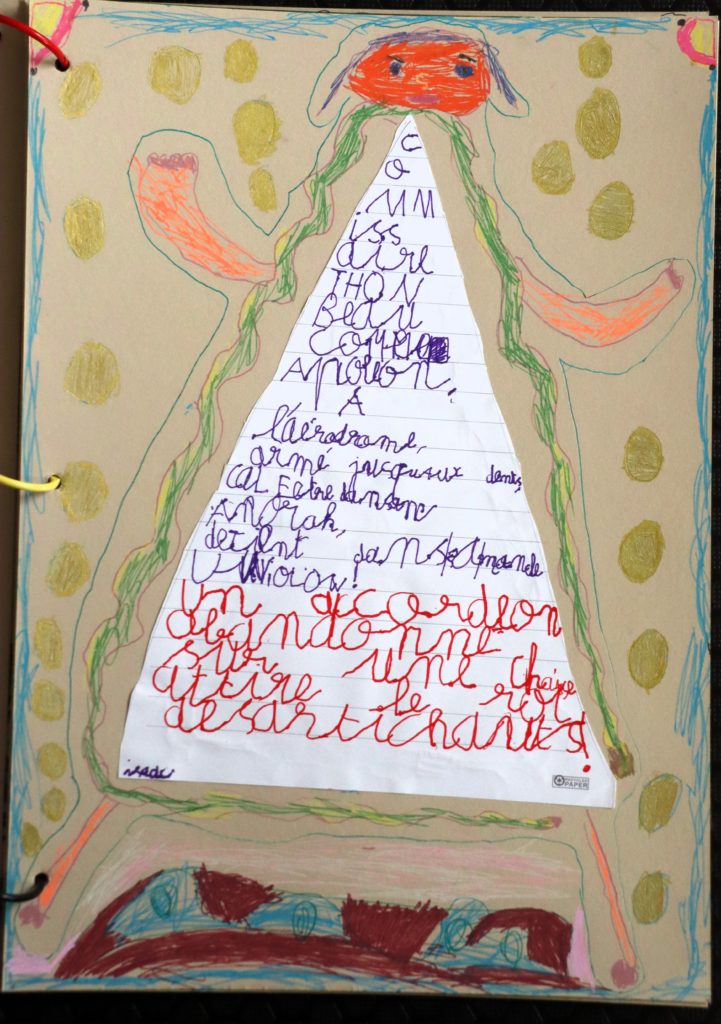 C
O
MM
iss
aire
THON
Beau
comme
Apollon,
À
l'aérodrome,
armé jusqu'aux dents,
car
Anorak,
détient dans
Un accordéon
abandonné
sur une chaise
attire le roi
des artichauts!
RECYCLED
PAPER